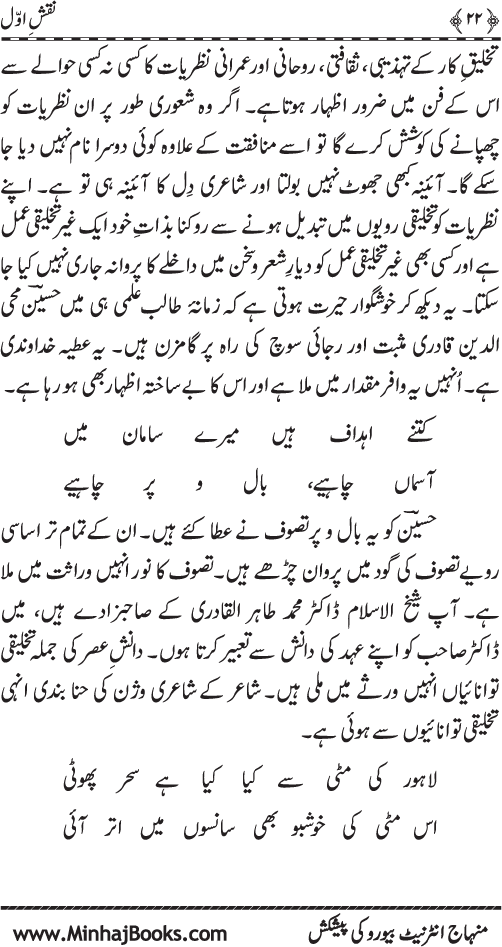 ﴿۲۲﴾ نقشِ اوّل
تخلیق کار کے تہذیبی، ثقافتی، روحانی اور عمرانی نظریات کا کسی نہ کسی حوالے سے
اس کے فن میں ضرور اظہار ہوتا ہے۔ اگر وہ شعوری طور پر ان نظریات کو
چھپانے کی کوشش کرے گا تو اسے منافقت کے علاوہ کوئی دوسرا نام نہیں دیا جا
سکے گا۔ آئینہ کبھی جھوٹ نہیں بولتا اور شاعری دِل کا آئینہ ہی تو ہے۔ اپنے
نظریات کو تخلیقی رویوں میں تبدیل ہونے سے روکنا بذاتِ خود ایک غیر تخلیقی عمل
ہے اور کسی بھی غیر تخلیقی عمل کو دیارِ شعر و سخن میں داخلے کا پروانہ جاری نہیں کیا جا
سکتا۔ یہ دیکھ کر خوشگوار حیرت ہوتی ہے کہ زمانۂ طالب علمی ہی میں حسینؔ محی
الدین قادری مثبت اور رجائی سوچ کی راہ پر گامزن ہیں۔ یہ عطیہ خداوندی
ہے۔ اُنہیں یہ وافر مقدار میں ملا ہے اور اس کا بے ساختہ اظہار بھی ہو رہا ہے۔
کتنے اہداف ہیں میرے سامان میں
آسماں چاہیے، بال و پر چاہیے
حسینؔ کو یہ بال و پر تصوف نے عطا کئے ہیں۔ ان کے تمام تر اساسی
رویے تصوف کی گود میں پروان چڑھے ہیں۔ تصوف کا نور انہیں وراثت میں ملا
ہے۔ آپ شیخ الاسلام ڈاکٹر محمد طاہر القادری کے صاحبزادے ہیں، میں
ڈاکٹر صاحب کو اپنے عہد کی دانش سے تعبیر کرتا ہوں۔ دانشِ عصر کی جملہ تخلیقی
توانائیاں انہیں ورثے میں ملی ہیں۔ شاعر کے شاعری وژن کی حنا بندی انہی
تخلیقی توانائیوں سے ہوئی ہے۔
لاہور کی مٹی سے کیا کیا ہے سحر پھوٹی
اس مٹی کی خوشبو بھی سانسوں میں اتر آئی
منہاج انٹرنیٹ بیورو کی پیشکش www.MinhajBooks.com